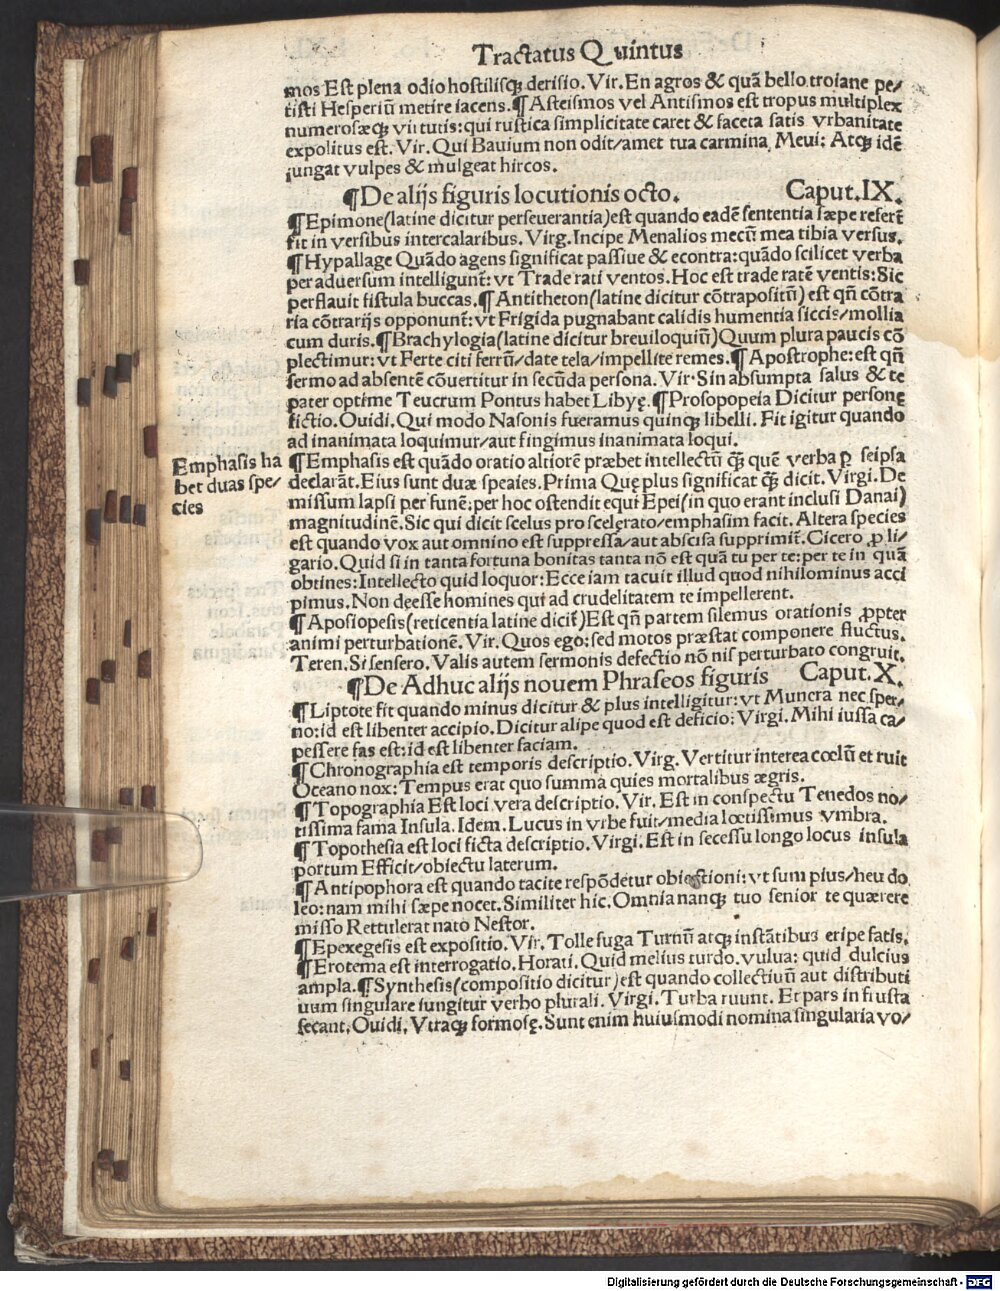 Tractatus Quintus
mos Est plena odio hostilisq; derisio. Vir. En agros & quā bello troiane pe/
tisti Hesperiū metire iacens. ¶ Asteismos vel Antismos est tropus multiplex
numerosæq; virtutis: qui rustica simplicitate caret & faceta satis vrbanitate
expolitus est. Vir. Qui Bauium non odit/amet tua carmina Meui: Atq; idē
iungat vulpes & mulgeat hircos.
¶ De alijs figuris locutionis octo. Caput. IX.
¶ Epimone (latine dicitur perseuerantia) est quando eadē sententia sæpe refert̄
fit in versibus intercalaribus. Virg. Incipe Menalios mecū mea tibia versus.
¶ Hypallage Quādo agens significat passiue & econtra: quādo scilicet verba
per aduersum intelligunt̄: vt Trade rati ventos. Hoc est trade ratē ventis: Sic
perflauit fistula buccas. ¶ Antitheton (latine dicitur cōtrapositū) est qn̄ cōtra
ria cōtrarijs opponunt̄: vt Frigida pugnabant calidis humentia siccis/mollia
cum duris. ¶ Brachylogia (latine dicitur breuiloquiū) Quum plura paucis cō
plectimur: vt Ferte citi ferrū/date tela/impellite remes. ¶ Apostrophe: est qn̄
sermo ad absentē cōuertitur in secūda persona. Vir. Sin absumpta salus & te
pater optime Teucrum Pontus habet Libyę. ¶ Prosopopeia Dicitur personę
fictio. Ouidi. Qui modo Nasonis fueramus quinq; libelli. Fit igitur quando
ad inanimata loquimur/aut fingimus inanimata loqui.
Emphasis ha
bet duas spe/
cies
¶ Emphasis est quādo oratio altiorē præbet intellectū q̄ȝ quē verba ꝑ seipsa
declarāt. Eius sunt duæ speaies. Prima Quę plus significat q̄ȝ dicit. Virgi. De
missum lapsi per funē: per hoc ostendit equi Epei (in quo erant inclusi Danai)
magnitudinē. Sic qui dicit scelus pro scelerato/emphasim facit. Altera species
est quando vox aut omnino est suppressa/aut abscisa supprimit̄. Cicero ꝓ li/
gario. Quid si in tanta fortuna bonitas tanta nō est quā tu per te: per te in quā
obtines: Intellecto quid loquor: Ecce iam tacuit illud quod nihilominus acci
pimus. Non deesse homines qui ad crudelitatem te impellerent.
¶ Aposiopesis (reticentia latine dicit̄) Est qn̄ partem silemus orationis ꝓpter
animi perturbationē. Vir. Quos ego: sed motos præstat componere fluctus.
Teren. Si sensero. Valis autem sermonis defectio nō nisi perturbato congruit.
¶ De Adhuc alijs nouem Phraseos figuris Caput. X.
¶ Liptote fit quando minus dicitur & plus intelligitur: vt Munera nec sper/
no: id est libenter accipio. Dicitur a lipe quod est deficio: Virgi. Mihi iussa ca/
pessere fas est: id est libenter faciam.
¶ Chronographia est temporis descriptio. Virg. Vertitur interea cœlū et ruit
Oceano nox: Tempus erat quo summa quies mortalibus ægris.
¶ Topographia Est loci vera descriptio. Vir. Est in conspectu Tenedos no/
tissima fama Insula. Idem. Lucus in vrbe fuit/media lœtissimus vmbra.
¶ Topothesia est loci ficta descriptio. Virgi. Est in secessu longo locus insula
portum Efficit/obiectu laterum.
¶ Antipophora est quando tacite respōdetur obiectioni: vt sum pius/heu do
leo: nam mihi sæpe nocet. Similiter hic. Omnia nanq; tuo senior te quærere
misso Rettulerat nato Nestor.
¶ Epexegesis est expositio. Vir. Tolle fuga Turnū atq; instātibus eripe fatis.
¶ Erotema est interrogatio. Horati. Quid melius turdo. vulua: quid dulcius
ampla. ¶ Synthesis (compositio dicitur) est quando collectiuū aut distributi
uum singulare iungitur verbo plurali. Virgi. Turba ruunt. Et pars in frusta
secant. Ouidi. Vtraq; formosę. Sunt enim huiusmodi nomina singularia vo/
Digitalisierung gefördert durch die Deutsche Forschungsgemeinschaft - DFG